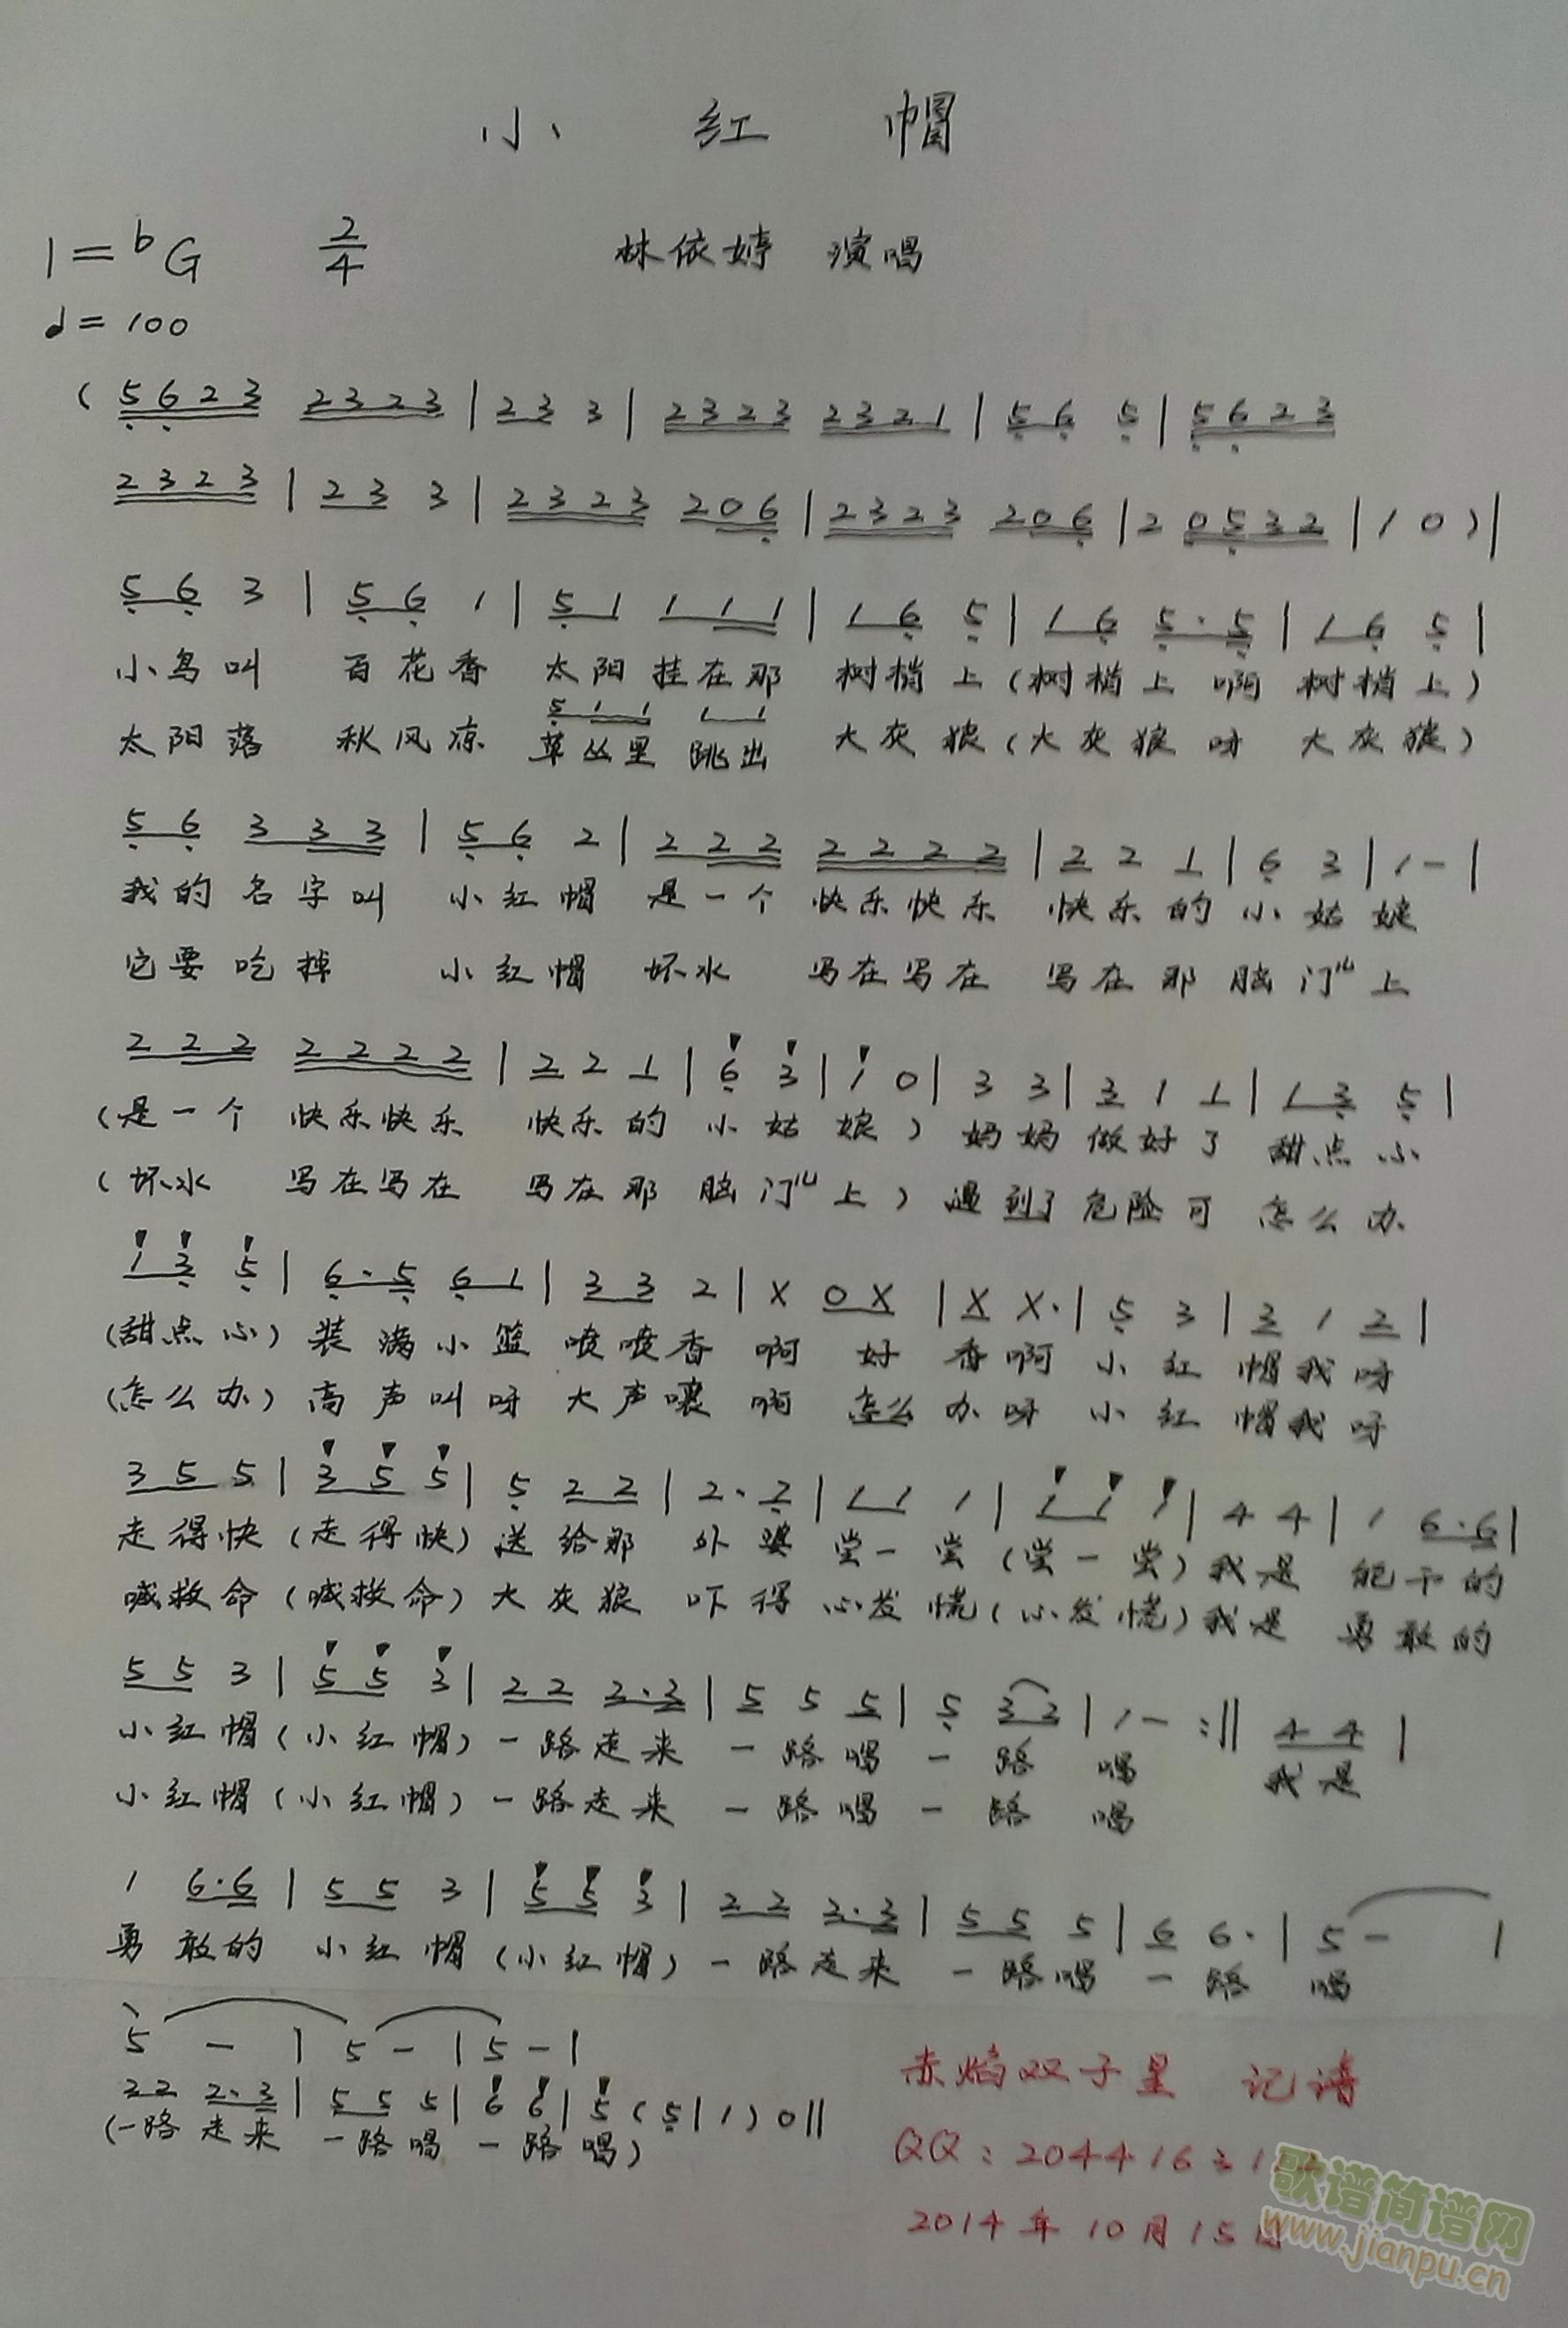 小 红 帽
1=bG 2/4 林依婷 演唱
♩=100
( 5 6 2 3 2 3 2 3 | 2 3 3 | 2 3 2 3 2 3 2 1 | 5 6 5 | 5 6 2 3
2 3 2 3 | 2 3 3 | 2 3 2 3 2 0 6 | 2 3 2 3 2 0 6 | 2 0 5 3 2 | 1 0 ) |
5 6 3 | 5 6 1 | 5 1 1 1 1 | 1 6 5 | 1 6 5 · 5 | 1 6 5 |
小鸟叫 百花香 太阳挂在那 树梢上(树梢上 啊 树梢上)
5 1 1 1 1
太阳落 秋风凉 草丛里 跳出 大灰狼(大灰狼 呀 大灰狼)
5 6 3 3 3 | 5 6 2 | 2 2 2 2 2 2 2 | 2 2 1 | 6 3 | 1 - |
我的名字叫 小红帽 是一个 快乐快乐 快乐的小姑娘
它要吃掉 小红帽 坏水 写在写在 写在那脑门儿上
2 2 2 2 2 2 2 | 2 2 1 | 6 3 | 1 0 | 3 3 | 3 1 1 | 1 3 5 |
(是一个 快乐快乐 快乐的小姑娘) 妈妈做好了 甜点心
(坏水 写在写在 写在那脑门儿上) 遇到了危险可 怎么办
1 3 5 | 6 · 5 6 1 | 3 3 2 | X 0 X | X X · | 5 3 | 3 1 2 |
(甜点心) 装满小篮 喷喷香 啊 好 香啊 小红帽我呀
(怎么办) 高声叫呀 大声嚷 啊 怎么办呀 小红帽我呀
3 5 5 | 3 5 5 | 5 2 2 | 2 · 2 | 1 1 1 | 1 1 1 | 4 4 | 1 6 · 6 |
走得快(走得快) 送给那 外婆尝一尝(尝一尝)我是 能干的
喊救命(喊救命) 大灰狼 吓得心发慌(心发慌)我是 勇敢的
5 5 3 | 5 5 3 | 2 2 2 · 3 | 5 5 5 | 5 3 2 | 1 - :|| 4 4 |
小红帽(小红帽)一路走来 一路唱一路 唱 我是
小红帽(小红帽)一路走来 一路唱一路 唱
1 6 · 6 | 5 5 3 | 5 5 3 | 2 2 2 · 3 | 5 5 5 | 6 6 · | 5 - |
勇敢的 小红帽(小红帽)一路走来 一路唱一路 唱
5 - | 5 - | 5 - |
2 2 2 · 3 | 5 5 5 | 6 6 | 5 ( 5 | 1 ) 0 ||
(一路走来 一路唱一路唱)
赤焰双子星 记谱
QQ:2044163
2014年10月15日
歌谱简谱网
www.jianpu.cn